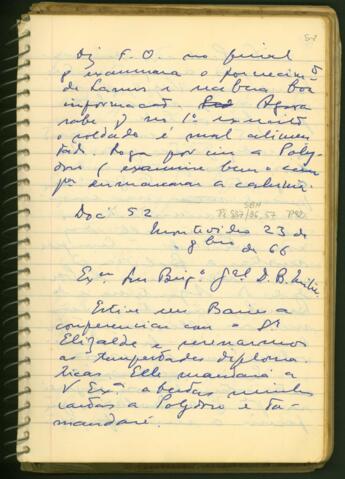 57
Diz F. O. no final
q examinara o fornecimto
de Lanus e recebeu boa
informação. Agora
sabe q no 1º exercito
o soldado é mal alimen-
tado. Roga por im a Poly-
doro q examine bem o
pa desmascarar a calumnia.
Doc 52
SBH
Pi 587/86, 57 P82
Montevideo 23 de
9bro de 66
Exmo Snr Brigo Gal D. B. Mitre
Estive em Baires a
conferenciar com o Dr
Elizalde e serenarmos
as tempestades diploma-
ticas. Elle mandará a
V Exª abertas minhas
cartas a Polydoro e Ta-
mandaré.